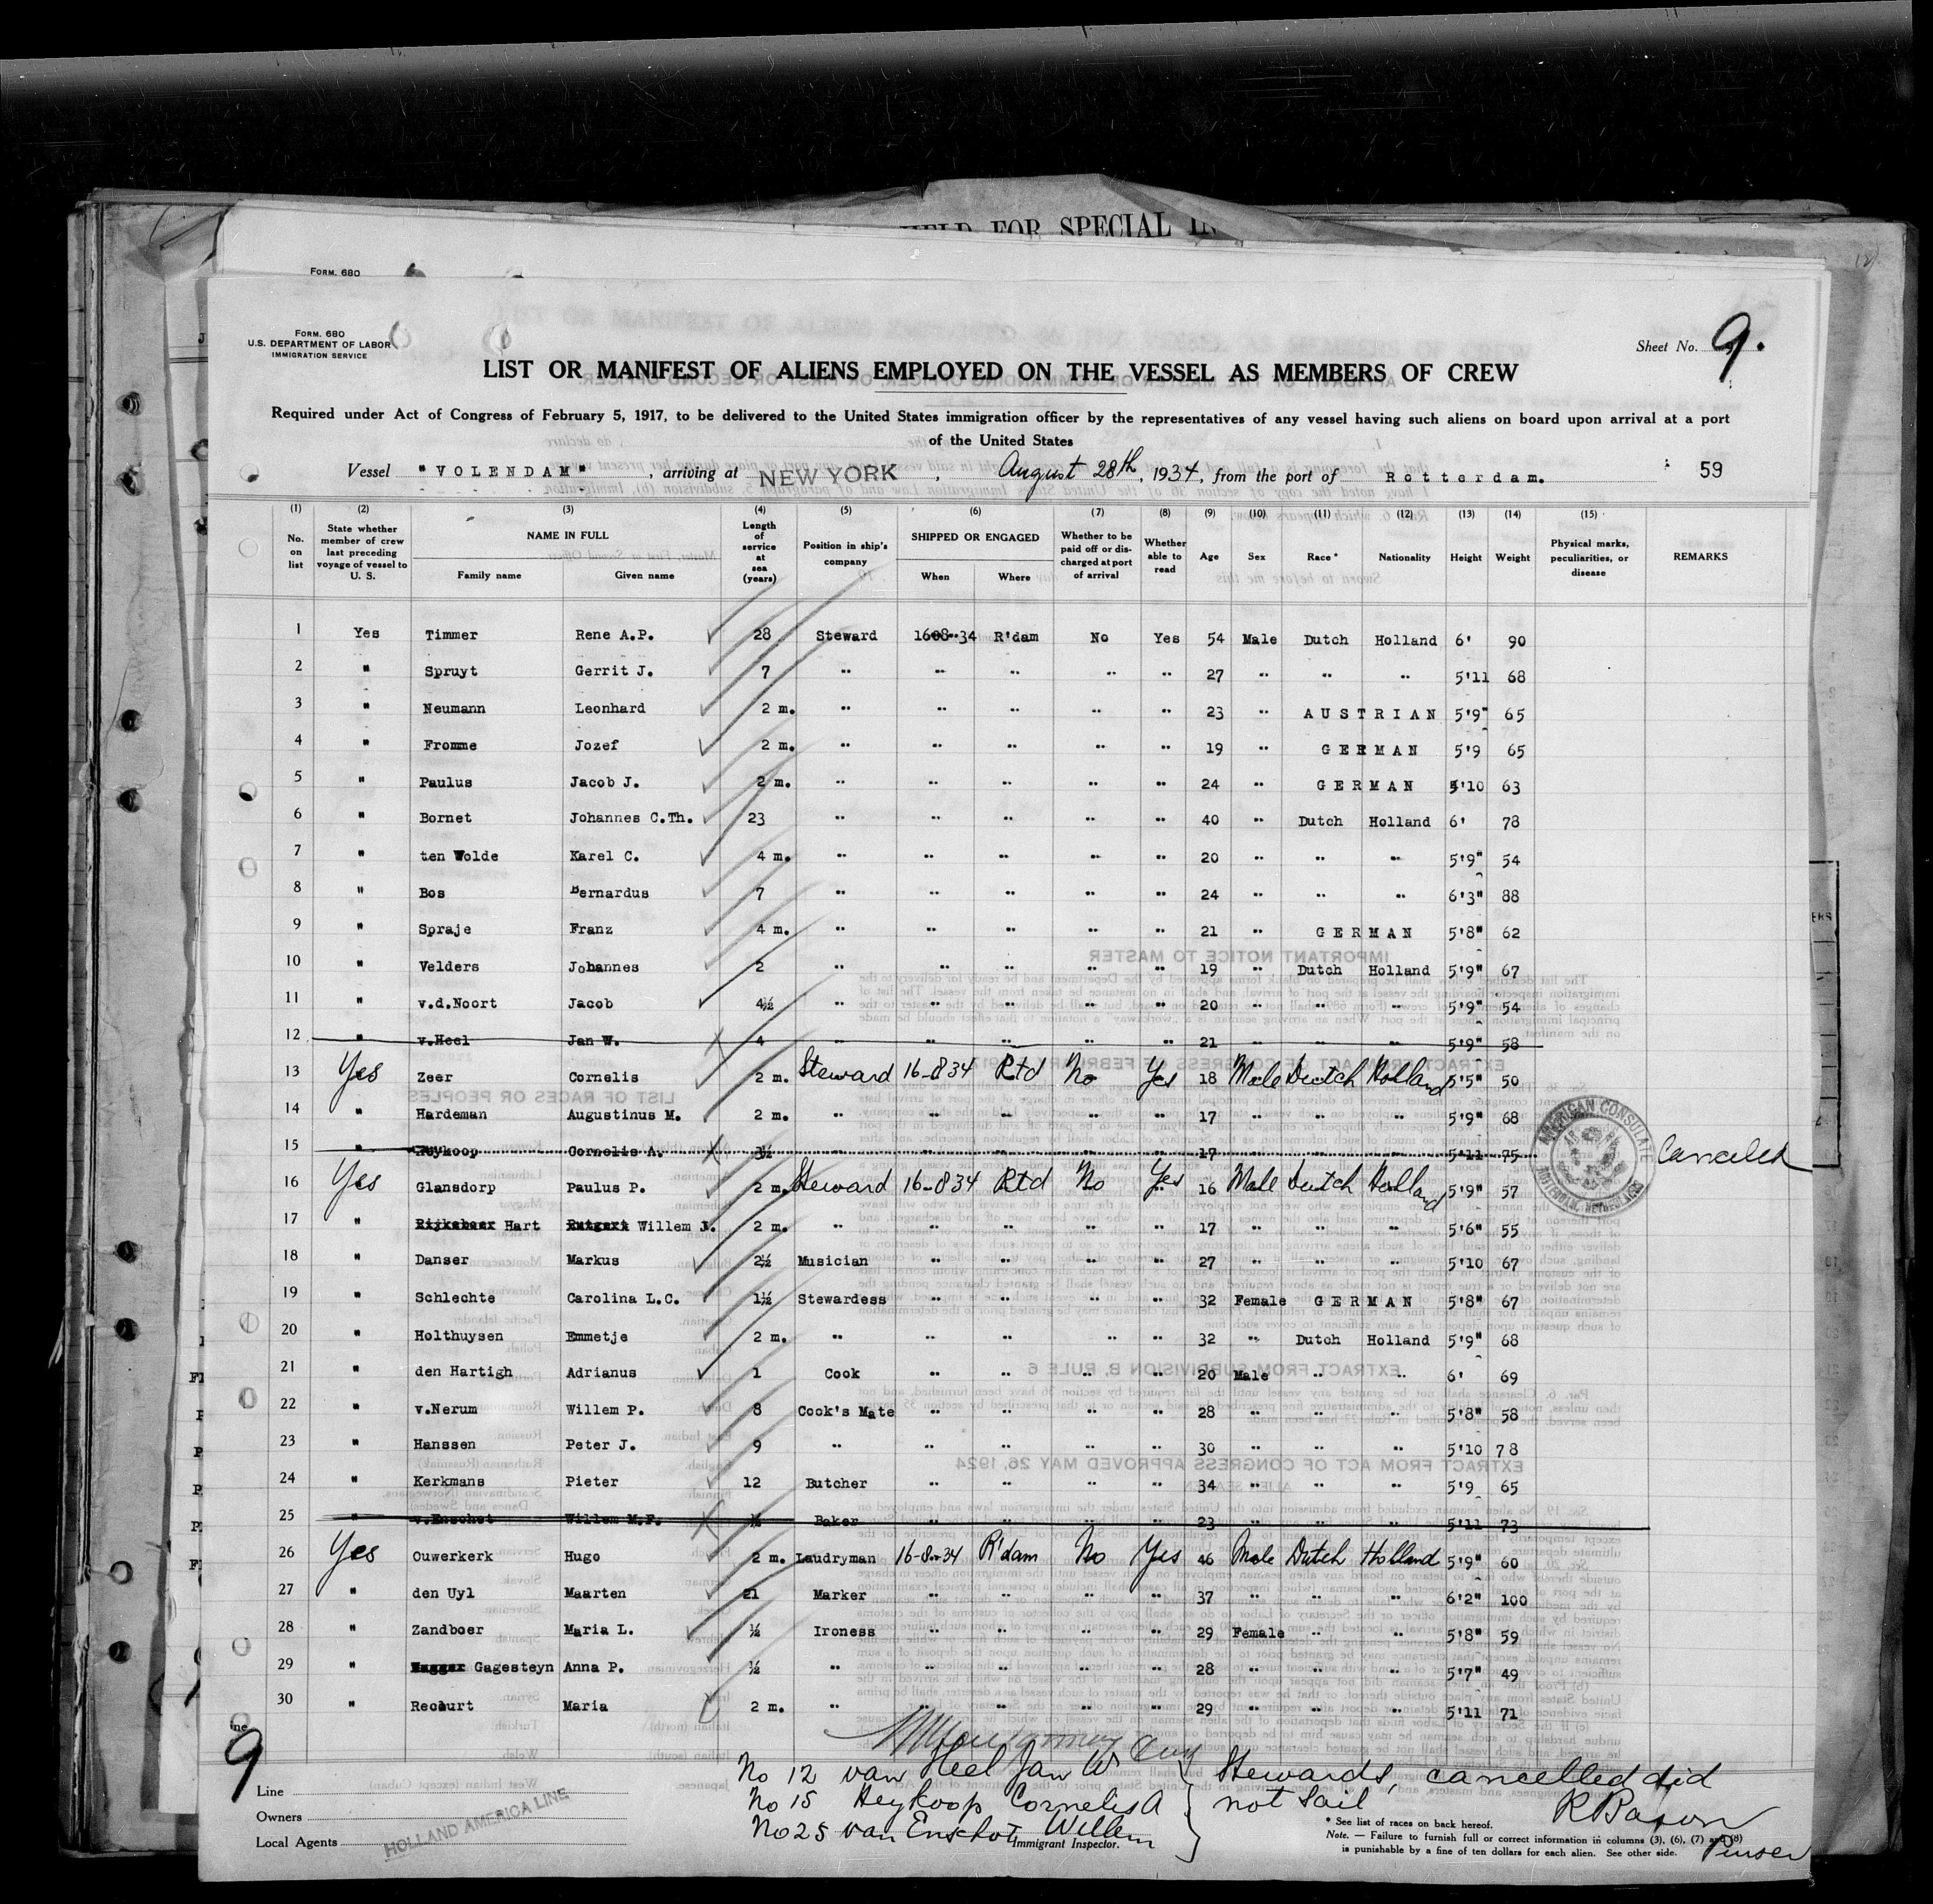 HELD FOR SPECIAL IN
FORM. 680
FORM. 680
U.S. DEPARTMENT OF LABOR
IMMIGRATION SERVICE
Sheet No. 9.
LIST OR MANIFEST OF ALIENS EMPLOYED ON THE VESSEL AS MEMBERS OF CREW
Required under Act of Congress of February 5, 1917, to be delivered to the United States immigration officer by the representatives of any vessel having such aliens on board upon arrival at a port
of the United States
Vessel "VOLENDAM", arriving at NEW YORK, August 28th, 1934, from the port of Rotterdam. 59
(1) (2) (3) (4) (5) (6) (7) (8) (9) (10) (11) (12) (13) (14) (15)
No. on list | State whether member of crew last preceding voyage of vessel to U. S. | NAME IN FULL Family name Given name | Length of service at sea (years) | Position in ship's company | SHIPPED OR ENGAGED When Where | Whether to be paid off or discharged at port of arrival | Whether able to read | Age | Sex | Race * | Nationality | Height | Weight | Physical marks, peculiarities, or disease | REMARKS
1 Yes Timmer Rene A.P. 28 Steward 16-08-34 R'dam No Yes 54 Male Dutch Holland 6' 90
2 " Spruyt Gerrit J. 7 " " " " " 27 " " " 5'11 68
3 " Neumann Leonhard 2 m. " " " " " 23 " AUSTRIAN 5'9" 65
4 " Fromme Jozef 2 m. " " " " " 19 " GERMAN 5'9 65
5 " Paulus Jacob J. 2 m. " " " " " 24 " GERMAN 5'10 63
6 " Bornet Johannes C.Th. 23 " " " " " 40 " Dutch Holland 6' 78
7 " ten Wolde Karel C. 4 m. " " " " " 20 " " " 5'9" 54
8 " Bos Bernardus 7 " " " " " 24 " " " 6'3" 88
9 " Spraje Franz 4 m. " " " " " 21 " GERMAN 5'8" 62
10 " Velders Johannes 2 " " " " " 19 " Dutch Holland 5'9" 67
11 " v.d.Noort Jacob 4½ " " " " " 20 " " " 5'9" 54
12 " v.Heel Jan W. 4 " " " " " 21 " " " 5'9" 58
13 Yes Zeer Cornelis 2 m. Steward 16-8 34 Rtd No Yes 18 Male Dutch Holland 5'5" 50
14 " Hardeman Augustinus M. 2 m. " " " " " 17 " " " 5'9" 68
15 " Heykoop Cornelis A. 3½ " " " " " 17 " " " 5'11 75 Canceled
AMERICAN CONSULATE
ROTTERDAM, NETHERLANDS
16 Yes Glansdorp Paulus P. 2 m. Steward 16-8 34 Rtd No Yes 16 Male Dutch Holland 5'9" 57
17 " Hart Willem J. 2 m. " " " " " 17 " " " 5'6" 55
18 " Danser Markus 2½ Musician " " " " 27 " " " 5'10 67
19 " Schlechte Carolina L.C. 1½ Stewardess " " " " 32 Female GERMAN 5'8" 67
20 " Holthuysen Emmetje 2 m. " " " " " 32 " Dutch Holland 5'9" 68
21 " den Hartigh Adrianus 1 Cook " " " " 20 Male " " 6' 69
22 " v.Nerum Willem P. 8 Cook's Mate " " " " 28 " " " 5'8" 58
23 " Hanssen Peter J. 9 " " " " " 30 " " " 5'10 78
24 " Kerkmans Pieter 12 Butcher " " " " 34 " " " 5'9 65
25 " v.Enschot Willem M.F. ½ Baker " " " " 23 " " " 5'11 73
26 Yes Ouwerkerk Hugo 2 m. Laudryman 16-8-34 R'dam No Yes 46 Male Dutch Holland 5'9" 60
27 " den Uyl Maarten 21 Marker " " " " 37 " " " 6'2" 100
28 " Zandboer Maria L. ½ Ironess " " " " 29 Female " " 5'8" 59
29 " Gagesteyn Anna P. ½ " " " " " 28 " " " 5'7" 49
30 " Recourt Maria 2 m. " " " " " 29 " " " 5'11 71
9
No 12 van Heel Jan W
No 15 Heykoop Cornelis A
No 25 van Enschot Willem
Stewards, cancelled did
not sail
Purser
Line
Owners
Local Agents HOLLAND AMERICA LINE
Immigrant Inspector.
* See list of races on back hereof.
Note. — Failure to furnish full or correct information in columns (3), (6), (7) and (8)
is punishable by a fine of ten dollars for each alien. See other side.